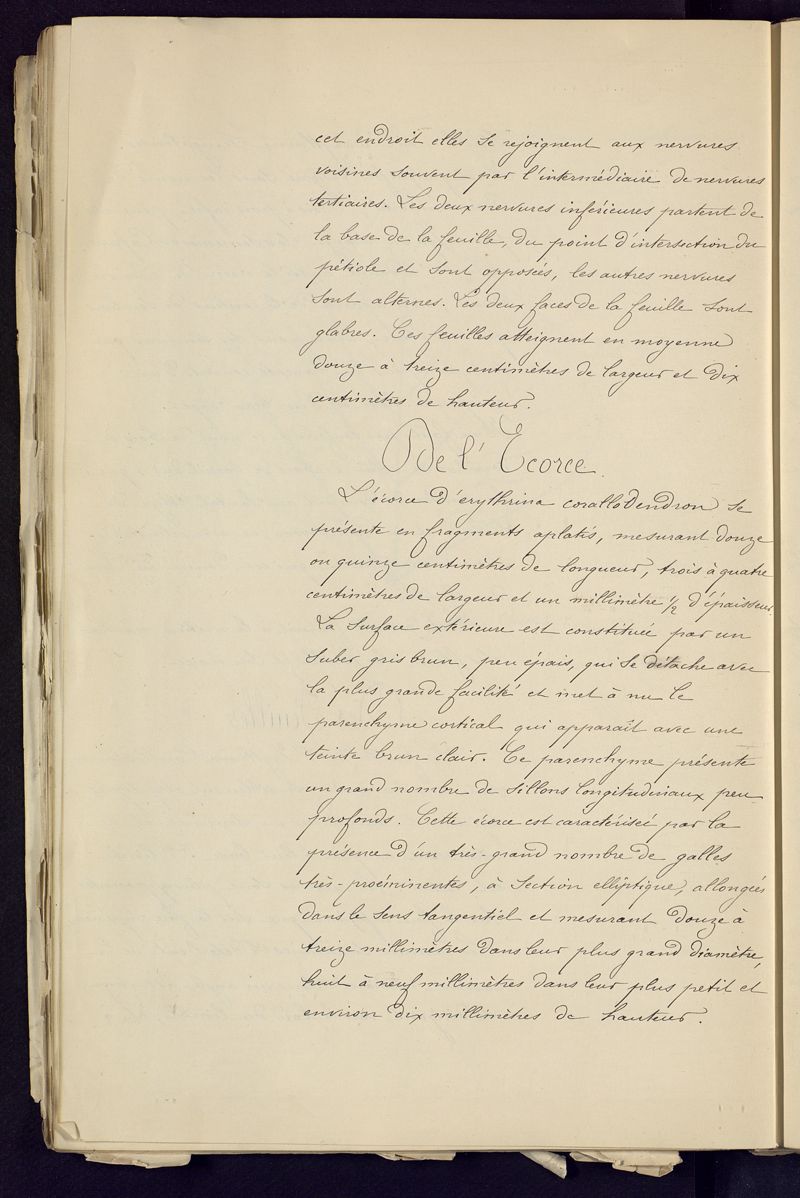 cet endroit elles se rejoignent aux nervures
voisines souvent par l'intermédiaire de nervures
tertiaires. Les deux nervures inférieures partent de
la base de la feuille, du point d'intersection du
pétiole et sont opposées, les autres nervures
sont alternes. Les deux faces de la feuille sont
glabres. Ces feuilles atteignent en moyenne
douze à treize centimètres de largeur et dix
centimètres de hauteur.
De l'Ecorce
L'écorce d'erythrina corallodendron se
présente en fragments aplatis, mesurant douze
ou quinze centimètres de longueur, trois à quatre
centimètres de largeur et un millimètre 1/2 d'épaisseur.
La surface extérieure est constituée par un
suber gris brun, peu épais, qui se détache avec
la plus grande facilité et met à nu le
parenchyme cortical qui apparaît avec une
teinte brun clair. Ce parenchyme présente
un grand nombre de sillons longitudinaux peu
profonds. Cette écorce est caractérisée par la
présence d'un très-grand nombre de galles
très-proéminentes, à section elliptique, allongées
dans le sens tangentiel et mesurant douze à
treize millimètres dans leur plus grand diamètre,
huit à neuf millimètres dans leur plus petit et
environ dix millimètres de hauteur.